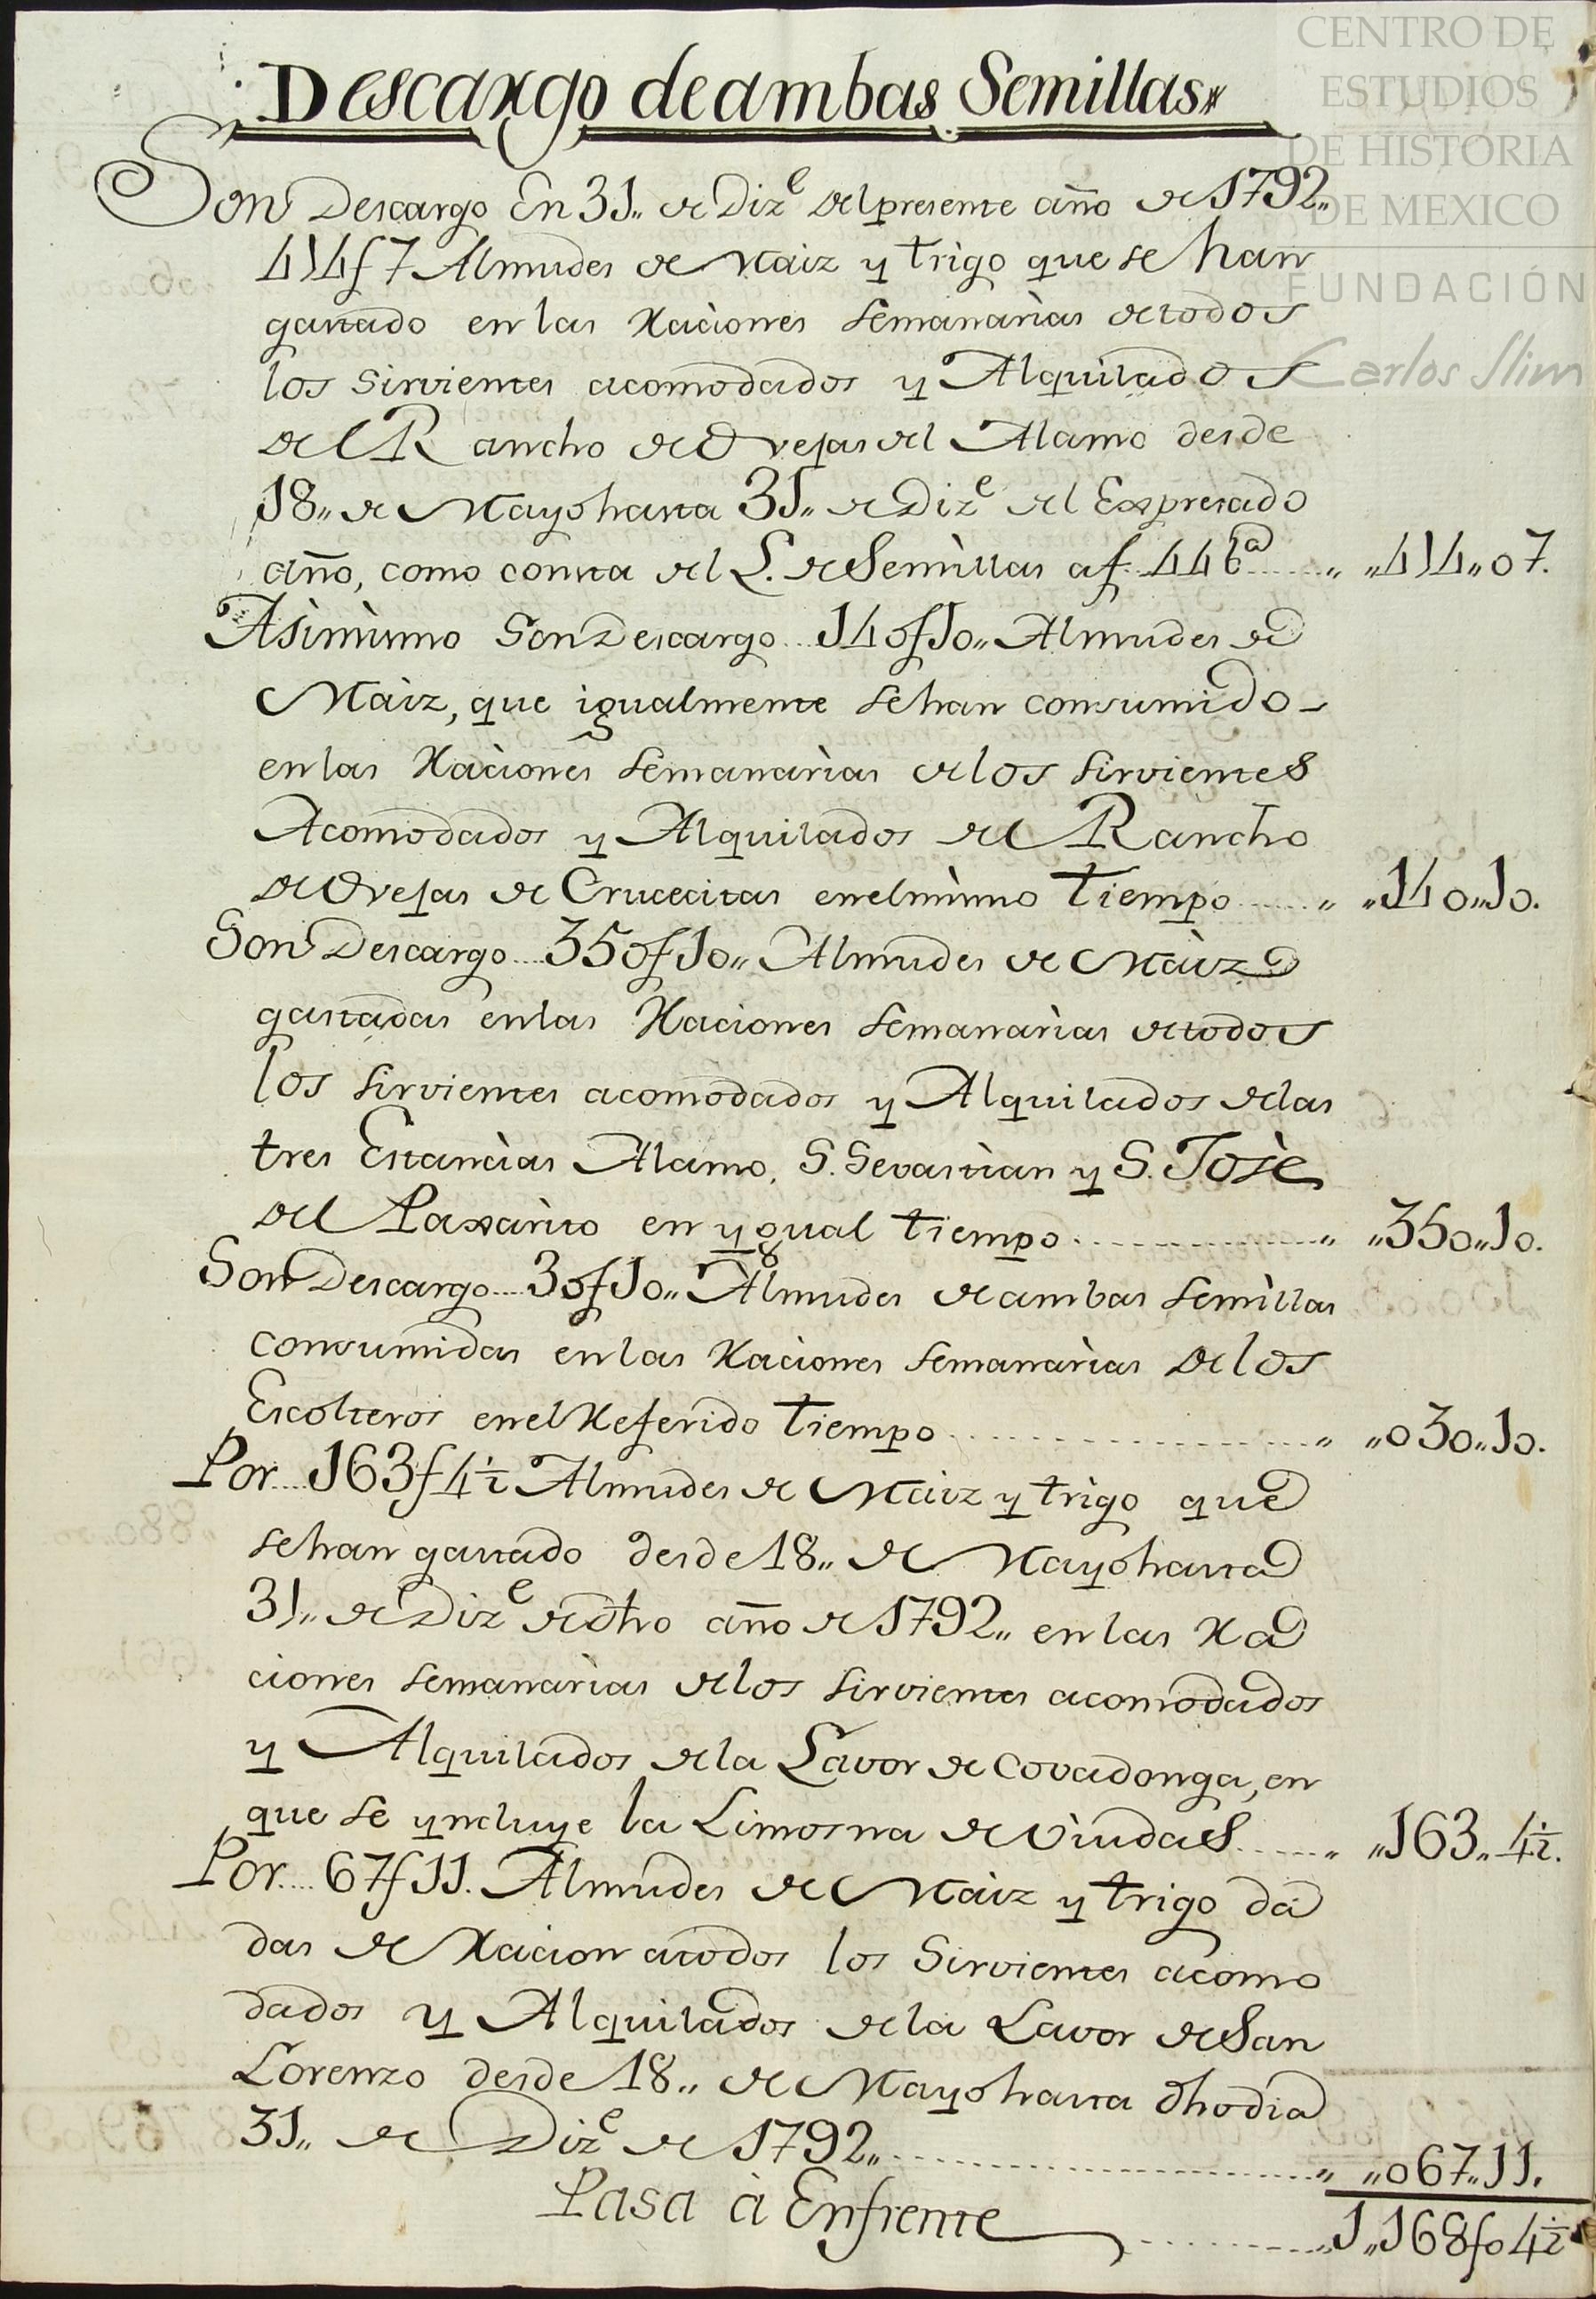 CENTRO DE
ESTUDIOS
DE HISTORIA
DE MEXICO
FUNDACIÓN
Carlos Slim
Descargo de ambas Semillas
Son Descargo En 31,, de Diz.e del presente año de 1792,,
414f7 Almudes de Maiz y trigo que se han
gastado en las Raciones semanarias de todos
los sirvientes acomodados y Alquilados
del Rancho de Ovejas del Alamo desde
18,, de Mayo hasta 31,, de Diz.e del Expresado
año, como consta del L. de Semillas a f. 44 b.a ,, ,,414,,07.
Asimismo Son Descargo 140f10,, Almudes de
Maiz, que igualmente se han consumido
en las Raciones semanarias de los sirvientes
Acomodados y Alquilados del Rancho
de Ovejas de Crucecitas en el mismo tiempo ,, ,,140,,10.
Son Descargo 350f10,, Almudes de Maiz
gastadas en las Raciones semanarias de todos
los sirvientes acomodados y Alquilados de las
tres Estancias Alamo, S. Sevastian y S. Josè
del Paxarito en ygual tiempo ,, ,,350,,10.
Son Descargo 30f10,, Almudes de ambas semillas
consumidas en las Raciones semanarias de los
Escolteros en el Referido tiempo ,, ,,030,,10.
Por 163f4½ Almudes de Maiz y trigo que
se han gastado desde 18,, de Mayo hasta
31,, de Diz.e de dho año de 1792,, en las Ra
ciones semanarias de los sirvientes acomodados
y Alquilados de la Lavor de Covadonga, en
que se yncluye la Limosna de Viudas ,, ,,163,,4½.
Por 67f11. Almudes de Maiz y trigo da
das de Racion a todos los Sirvientes acomo
dados y Alquilados de la Lavor de San
Lorenzo desde 18,, de Mayo hasta dho dia
31,, de Diz.e de 1792,, ,, ,,067,,11.
Pasa à Enfrente ,,1,,168f04½